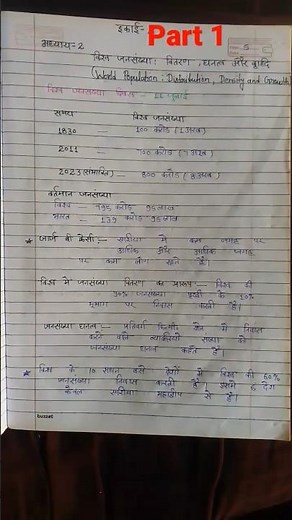 इकाई-
Part 1
5
अध्याय-2
विश्व जनसंख्या: वितरण, घनत्व और वृद्धि
(World Population : Distribution, Density and Growth)
विश्व जनसंख्या दिवस - 11 जुलाई
समय विश्व जनसंख्या
1830 — 100 करोड़ (1 अरब)
2011 — 700 करोड़ (7 अरब)
2023 — 800 करोड़ (8 अरब)
वर्तमान जनसंख्या
विश्व -
भारत - 139 करोड़ लाख
जार्ज बी क्रेसी :- एशिया में कम जगह पर
अधिक और अधिक जगह
पर कम लोग रहते हैं।
विश्व में जनसंख्या वितरण का प्रारूप - विश्व की
90% जनसंख्या पृथ्वी के 10%
भूभाग पर निवास करती है।
जनसंख्या घनत्व :- प्रतिवर्ग किमी. क्षेत्र में निवास
करने वाले व्यक्तियों की संख्या को
जनसंख्या घनत्व कहते हैं।
विश्व के 10 सघन बसे देशों में विश्व की 60%
जनसंख्या निवास करती है। इसमें 6 देश
केवल एशिया महाद्वीप के हैं।